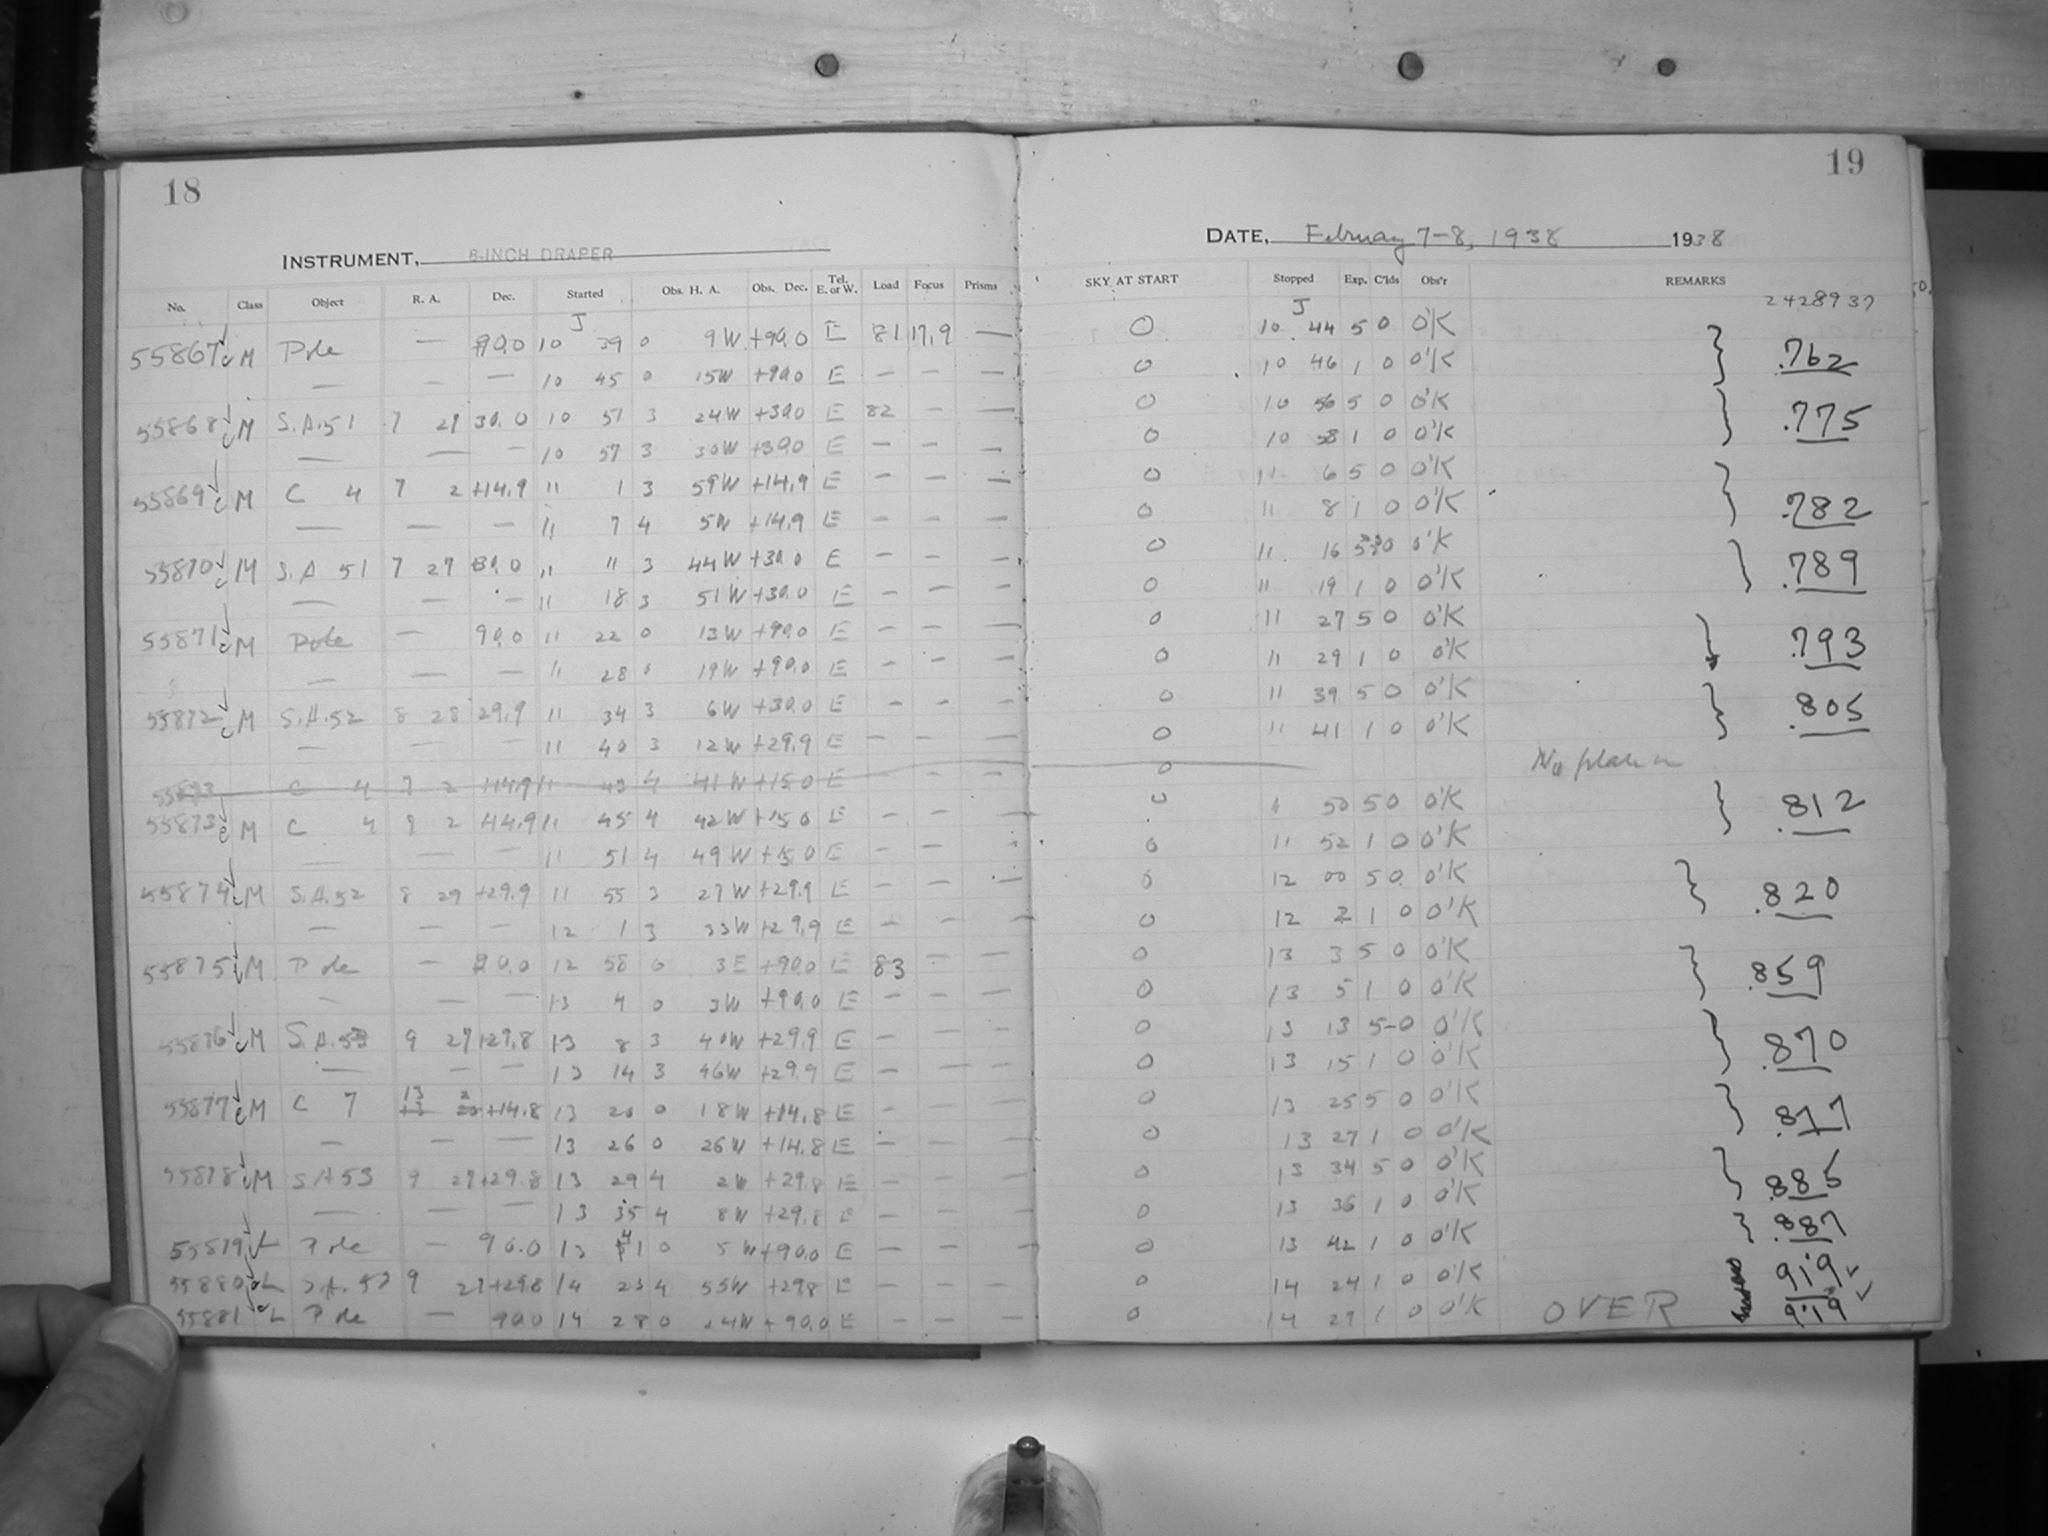 18
INSTRUMENT, 8-INCH DRAPER
No. Class Object R. A. Dec. Started Obs. H. A. Obs. Dec. Tel. E. or W. Load Focus Prisms
J
55867 M Pole — 90.0 10 39 0 9W +90.0 E 81 17.9 —
— — — 10 45 0 15W +90.0 E — — —
55868 M S.A.51 7 27 30.0 10 51 3 24W +30.0 E 82 — —
— — — 10 57 3 30W +30.0 E — — —
55869 M C 4 7 2 +14.9 11 1 3 59W +14.9 E — — —
— — — 11 7 4 5W +14.9 E — — —
55870 M S.A 51 7 27 30.0 11 11 3 44W +30.0 E — — —
— — — 11 18 3 51W +30.0 E — — —
55871 M Pole — 90.0 11 22 0 13W +90.0 E — — —
— — — 11 28 0 19W +90.0 E — — —
55872 M S.A.52 8 28 29.9 11 34 3 6W +30.0 E — — —
— — — 11 40 3 12W +29.9 E — — —
55873 C 4 7 2 +14.9 11 4 41W +15.0 E — — —
55873 M C 4 2 +14.9 11 45 4 42W +15.0 E — — —
— — — 11 51 4 49W +15.0 E — — —
55874 M S.A.52 8 29 +29.9 11 55 3 27W +29.9 E — — —
— — — 12 1 3 33W +29.9 E — — —
55875 M Pole — 90.0 12 58 0 3E +90.0 E 83 — —
— — — 13 4 0 3W +90.0 E — — —
55876 M S.A.53 9 27 +29.8 13 8 3 40W +29.9 E — — —
— — — 13 14 3 46W +29.9 E — — —
55877 M C 7 13 2 +14.8 13 20 0 18W +14.8 E — — —
— — — 13 26 0 26W +14.8 E — — —
55878 M SA53 9 27 +29.8 13 29 4 2W +29.8 E — — —
— — — 13 35 4 8W +29.8 E — — —
55879 L Pole — 90.0 13 41 0 5W +90.0 E — — —
55880 L S.A. 53 9 27 +29.8 14 23 4 55W +29.8 E — — —
55881 L Pole — 90.0 14 28 0 W +90.0 E — — —
19
DATE, February 7-8, 1938 1938
SKY AT START Stopped Exp. C'lds Obs'r REMARKS
2428937
J
0 10 44 5 0 O'K
0 10 46 1 0 O'K .762
0 10 56 5 0 O'K
0 10 58 1 0 O'K .775
0 11 6 5 0 O'K
0 11 8 1 0 O'K .782
0 11 16 5 0 O'K
0 11 19 1 0 O'K .789
0 11 27 5 0 O'K
0 11 29 1 0 O'K .793
0 11 39 5 0 O'K
0 11 41 1 0 O'K .805
0 No plate in
0 11 50 5 0 O'K .812
0 11 52 1 0 O'K
0 12 00 5 0 O'K
0 12 2 1 0 O'K .820
0 13 3 5 0 O'K
0 13 5 1 0 O'K .859
0 13 13 5 0 O'K
0 13 15 1 0 O'K .870
0 13 25 5 0 O'K
0 13 27 1 0 O'K .877
0 13 34 5 0 O'K
0 13 36 1 0 O'K .885
0 13 42 1 0 O'K .887
0 14 24 1 0 O'K 919
0 14 29 1 0 O'K OVER 919